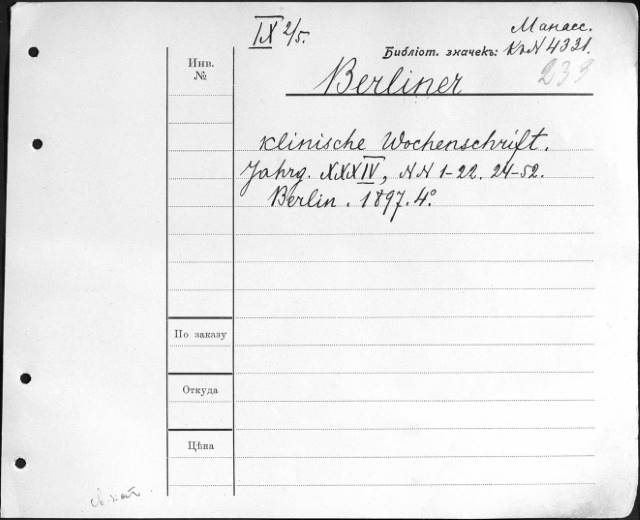 IX 2/5.
Манасс.
Библіот. значекъ: КъN 4331.
239
Инв.
№
Berliner
klinische Wochenschrift.
Jahrg. XXXIV, NN 1-22. 24-52.
Berlin. 1897. 4°.
По заказу
Откуда
Цѣна